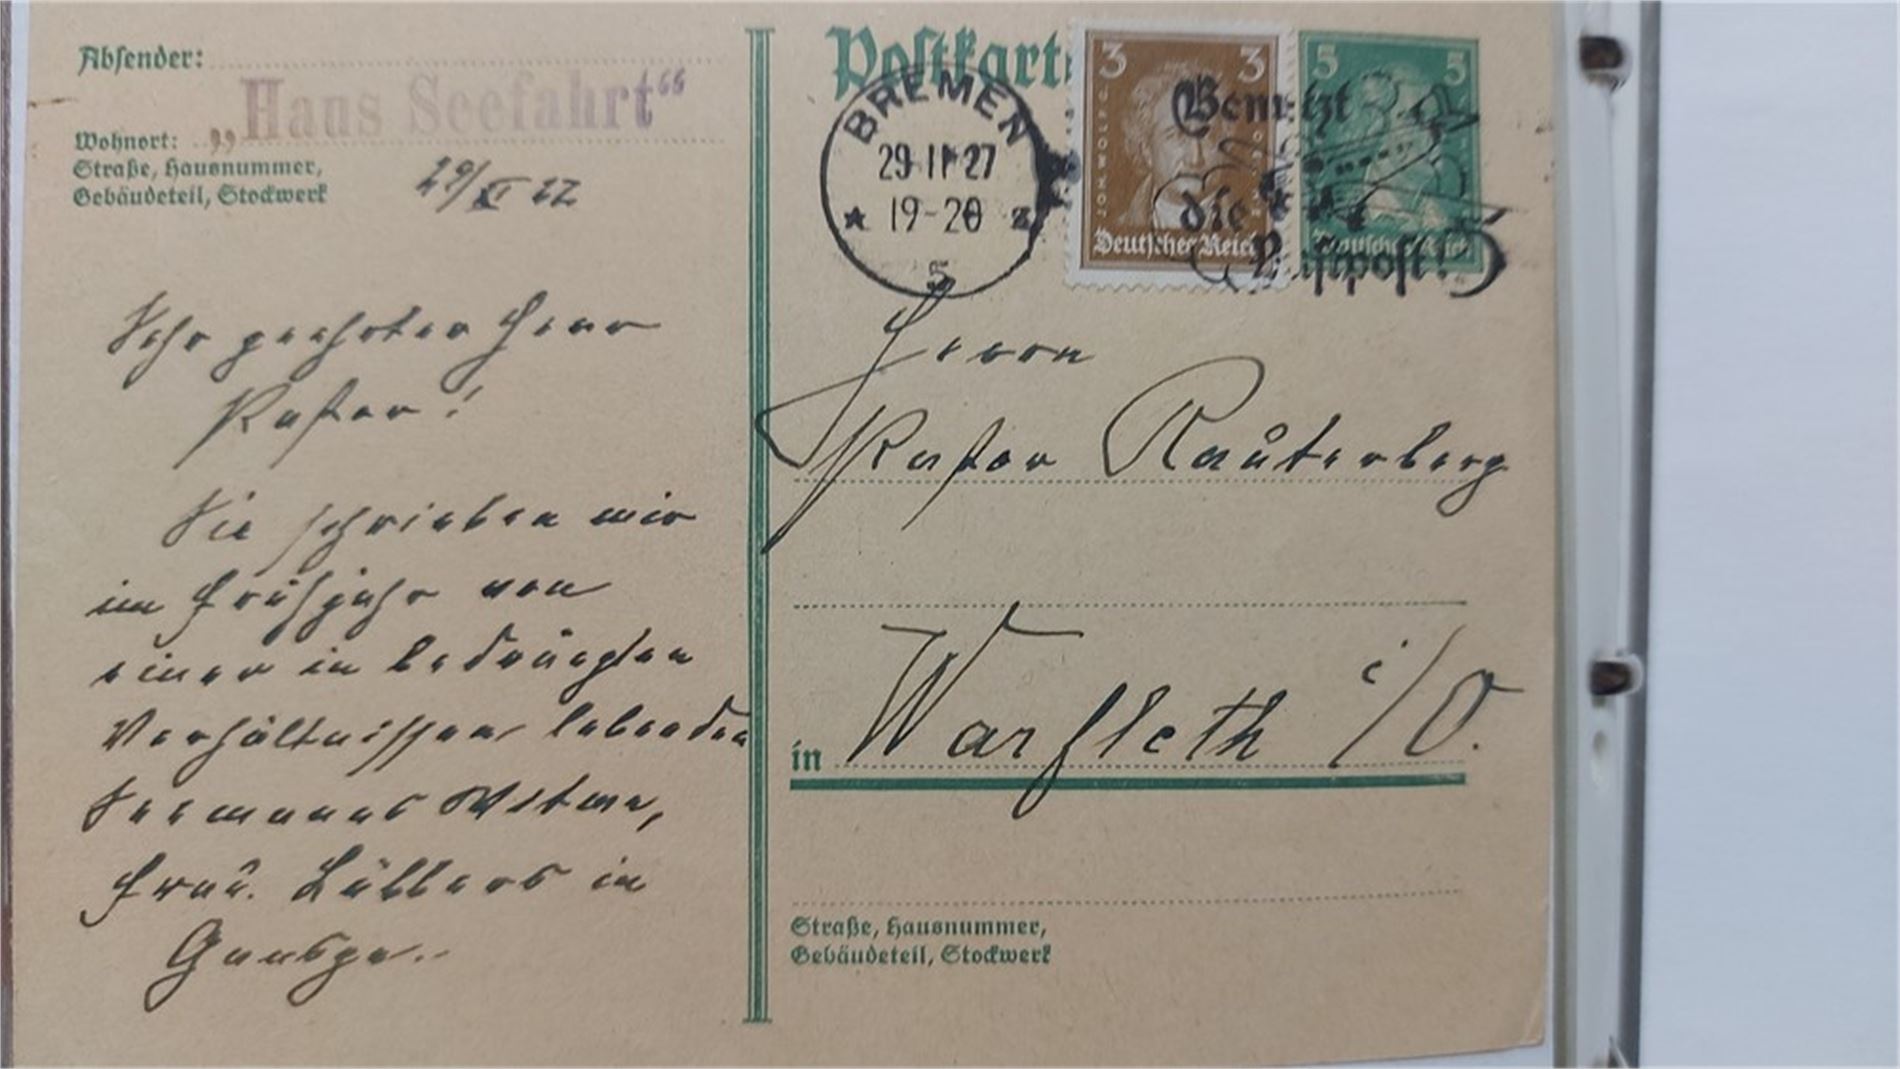 Absender:
„Haus Seefahrt“
Wohnort:
Straße, Hausnummer,
Gebäudeteil, Stockwerk
29/XI 27
Sehr geehrter Herr
Pastor!
Sie schrieben mir
im Frühjahr von
einer in bedrängten
Verhältnissen lebenden
Seemanns Witwe,
Frau Lübbers in
Postkarte
BREMEN
29 11 27
19-20
5
3 3
JOH. WOLFG.
Deutsches Reich
5 5
Deutsches Reich
Benutzt
die
Luftpost!
Herrn
Pastor Rauterberg
in Warfleth i/O.
Straße, Hausnummer,
Gebäudeteil, Stockwerk